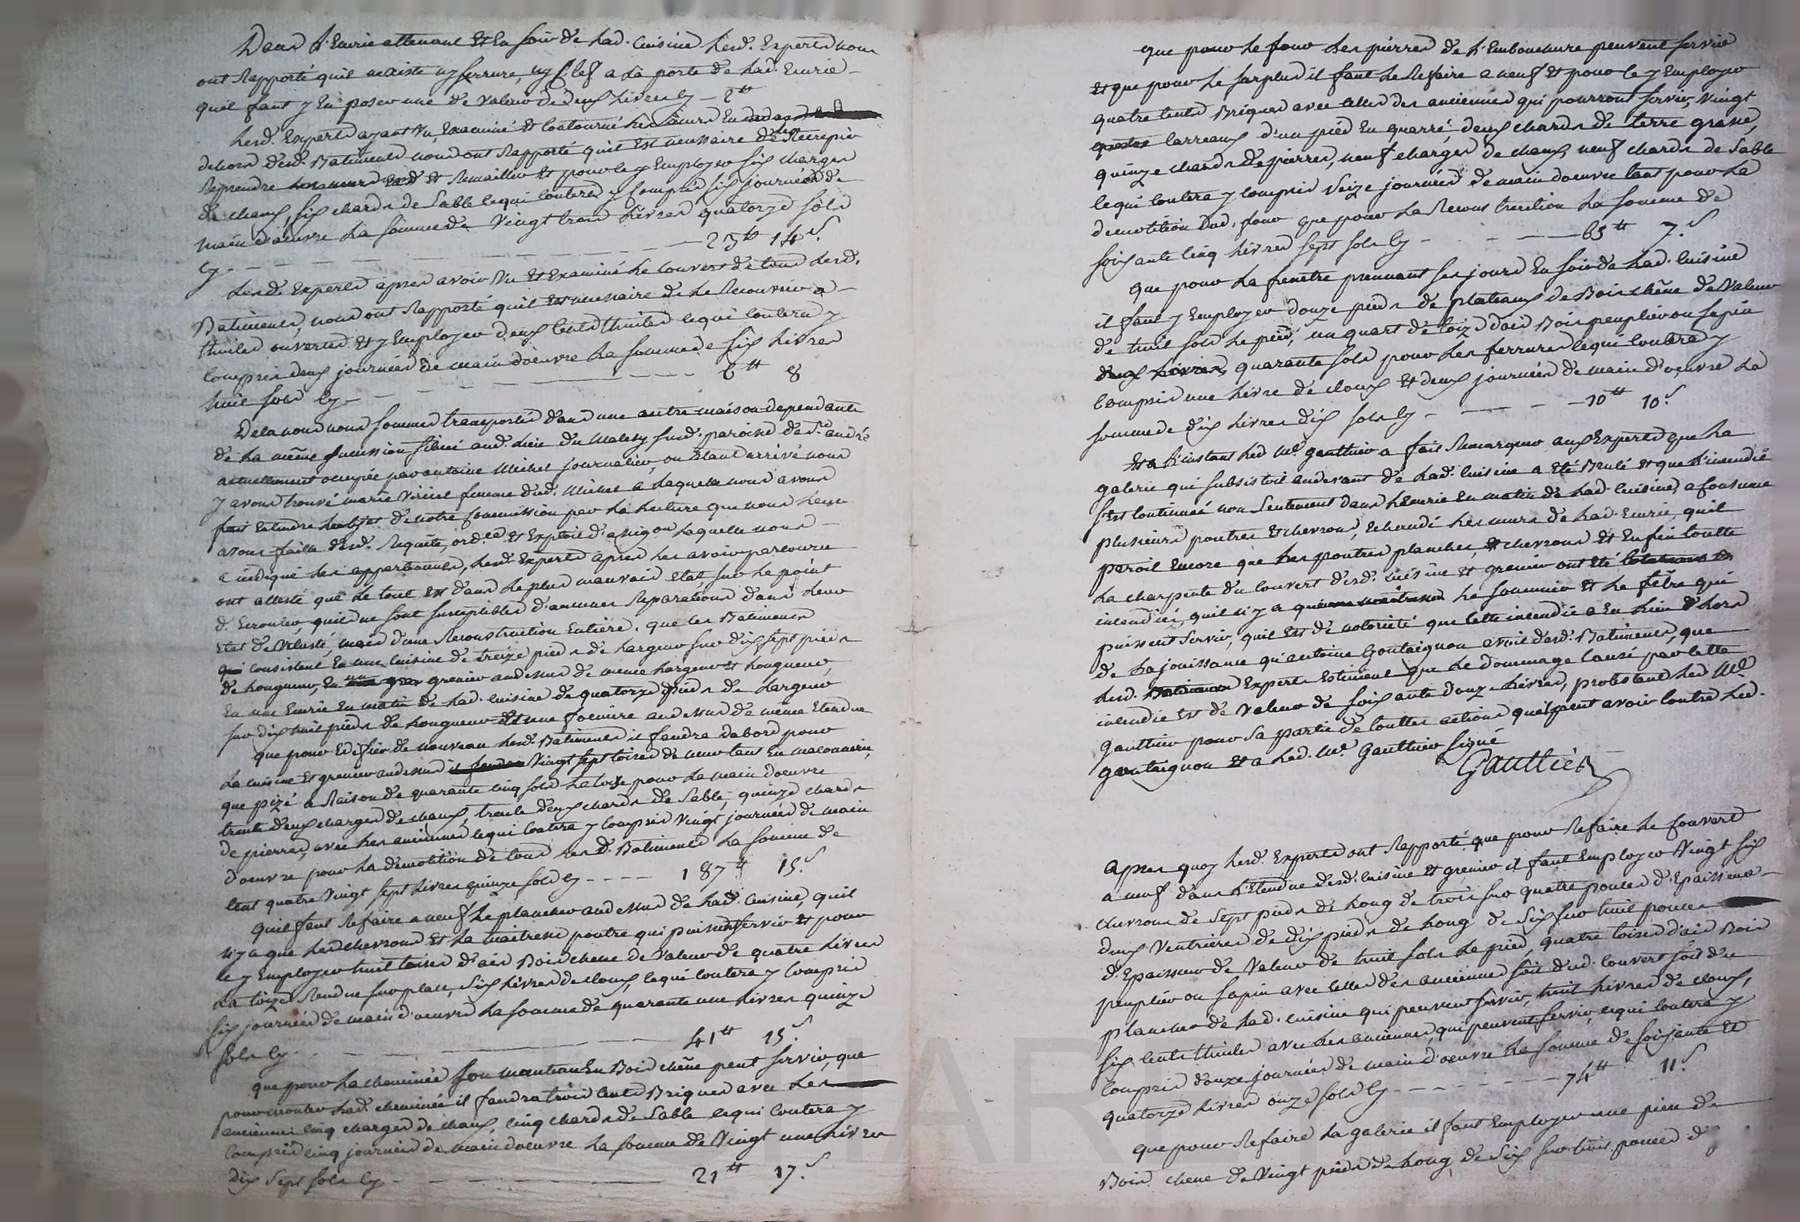 Dans l'Ecurie attenant et en soir de lad. Cuisine lesd. Experts nous
ont Rapporté quil n'existe ny serrure, ny Clef a La porte de lad. Ecurie
quil faut y En poser une de valeur de deux Livres Cy - 2tt
Lesd. Experts ayant vu, Examiné et Contourné les murs En
dehors desd. Batiments nous ont Rapporté quil Est necessaire de les Recrepir
Reprendre et Remailler et pour le y Employer six charges
de chaux, six chards de Sable lequi Coutera y Compris six journées de
main d'œuvre La somme de Vingt trois Livres quatorze sols
Cy - 23tt 14s
Lesds Experts apres avoir vu et Examiné le Couvert de tous lesd.
Batiments, nous ont Rapporté quil Est necessaire de le Recouvrir a
thuiles ouvertes et y Employer deux Cents thuiles lequi Coutera y
Compris deux journées de main d'œuvre La somme de six Livres
huit sols Cy - 6tt 8
De la nous nous sommes transportés dans une autre maison dependante
de la même situé aud. Lieu du susd. paroisse de St. andré
actuellement occupée par antoine Michel journalier, ou Etant arrivé nous
y avons trouvé marie femme dud. Michel a Laquelle nous avons
fait Entendre de notre Commission par la Lecture que nous Leur
avons faitte desd. Requête, ordce et Exploit d'assigon Laquelle nous
a indiqué les appartements, lesd. Experts apres les avoir parcouru
ont attesté que le tout Est dans le plus mauvais Etat sur le point
d'Ecrouler, quil ne sont susceptibles d'aucunes Reparations dans leur
Etat de Vetusté, mais d'une Reconstruction Entière, que les Batiments
consistent En une Cuisine de treize pieds de Largeur sur dix sept pieds
de Longueur, En grenier au dessus de meme Largeur et Longueur,
En une Ecurie En matin de lad. Cuisine de quatorze pieds de Largeur
sur dix huit pieds de Longueur et une feniere au dessus de même Etendue
que pour Edifier de nouveau lesd. Batiments il faudra d'abord pour
La Cuisine et grenier au dessus Vingt sept toises de murs tant En maconnerie,
que pizé a Raison de quarante cinq sols La toise pour La main d'œuvre
trente deux charges de chaux, trente deux chards de Sable, quinze chards
de pierres, avec les anciennes lequi Coutera y Compris Vingt journées de main
d'œuvre pour la demolition de tous lesd. Batiments La somme de
Cent quatre Vingt sept Livres quinze sols Cy - 187tt 15s
Quil faut Refaire a neuf le plancher au dessus de lad. Cuisine, quil
n'y a que les chevrons et la maitresse poutre qui puissent servir et pour
le y Employer huit toises d'ais Bois chene de Valeur de quatre Livres
La toize Rendue sur place, six Livres de cloux, lequi Coutera y Compris
six journées de main d'œuvre La somme de quarante une Livres quinze
sols Cy - 41tt 15s
que pour la cheminée son manteau En Bois chêne peut servir, que
pour monter lad. cheminée il faudra trois Cents Briques avec les
anciennes cinq charges de chaux, cinq chards de Sable lequi Coutera y
Compris cinq journées de main d'œuvre La somme de Vingt une Livres
dix Sept sols Cy - 21tt 17s
Que pour le four les pierres de l'Embouchure peuvent servir
et que pour le surplus il faut le Refaire a neuf et pour le y Employer
quatre Cents Briques avec celles des anciennes qui pourront servir, Vingt
Carreaux d'un pied En quarré, deux chards de terre grasse,
quinze chards de pierres, neuf charges de chaux, neuf chards de Sable
lequi Coutera y Compris seize journées de main d'œuvre tant pour la
demolition dud. four que pour la Reconstruction La somme de
soixante Cinq Livres sept sols Cy - 65tt 7s
Que pour la fenetre prennant ses jours En soir de lad. Cuisine
il faut y Employer douze pieds de plateaux de Bois chêne de Valeur
de huit sols le pied, un quart de toize d'ais Bois peuplier ou sapin
deux Livres, quarante sols pour les ferrures lequi Coutera y
Compris une Livre de cloux et deux journées de main d'œuvre La
somme de dix Livres dix sols Cy - 10tt 10s
Et a l'instant led. Me. Gauttier a fait Remarquer aux Experts que la
galerie qui subsistoit au devant de lad. Cuisine a Eté Brulé et que l'incendie
s'Est Continuée non seulement dans l'Ecurie En matin de lad. Cuisine, a Consumé
plusieurs poutres et chevrons, les murs de lad. Ecurie, quil
paroit Encore que les poutres planches, et chevrons et Enfin toutte
La charpente du Couvert desd. Cuisine et grenier ont été
incendiés, quil n'y a que le sommier et le fêtre qui
puissent servir, quil Est de notoriété que Cette incendie a Eu Lieu Lors
de la jouissance qu'antoine Goutaignon avoit desd. Batiments, que
lesd. Experts Estiment que le dommage Causé par Cette
incendie Est de Valeur de soixante douze Livres, protestant led. Me.
Gauttier pour sa partie de touttes actions quil peut avoir Contre led.
Goutaignon et a led. Me. Gauttier signé
Gauttier
Apres quoy lesd. Experts ont Rapporté que pour Refaire le Couvert
a neuf dans l'Etendue desd. Cuisine et grenier il faut Employer Vingt six
chevrons de Sept pieds de Long de trois sur quatre pouces d'Epaisseur
deux Ventrieres de dix pieds de Long de six sur huit pouces
d'Epaisseur de Valeur de huit sols le pied, quatre toises d'ais Bois
peuplier ou sapin avec celles des anciennes soit dud. Couvert soit du
plancher de lad. Cuisine qui peuvent servir, huit Livres de cloux,
six Cents thuiles avec les anciennes qui peuvent servir, lequi Coutera y
Compris douze journées de main d'œuvre La somme de soixante et
quatorze Livres onze sols Cy - 74tt 11s
Que pour Refaire la galerie il faut Employer une piece de
Bois chene de Vingt pieds de Long, de six sur huit pouces d